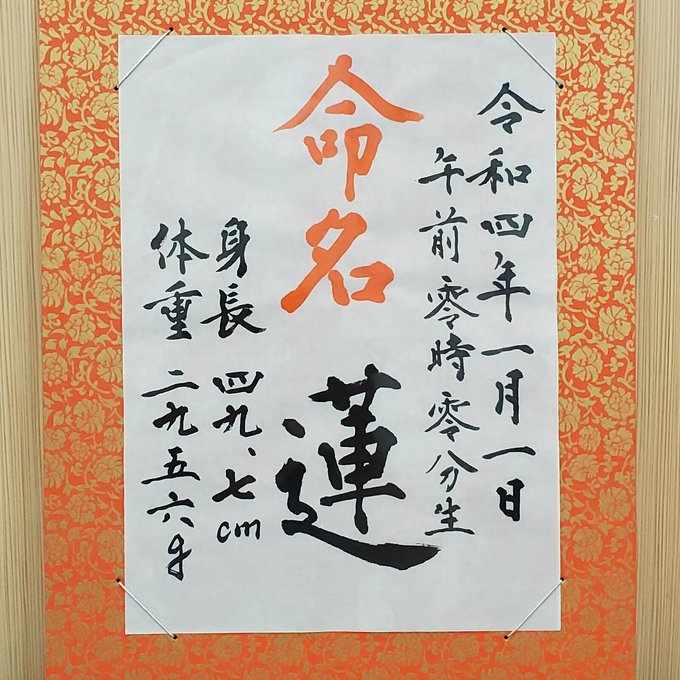 令和四年一月一日
午前零時零分生
命名
蓮
身長 四九、七cm
体重 二九五六g